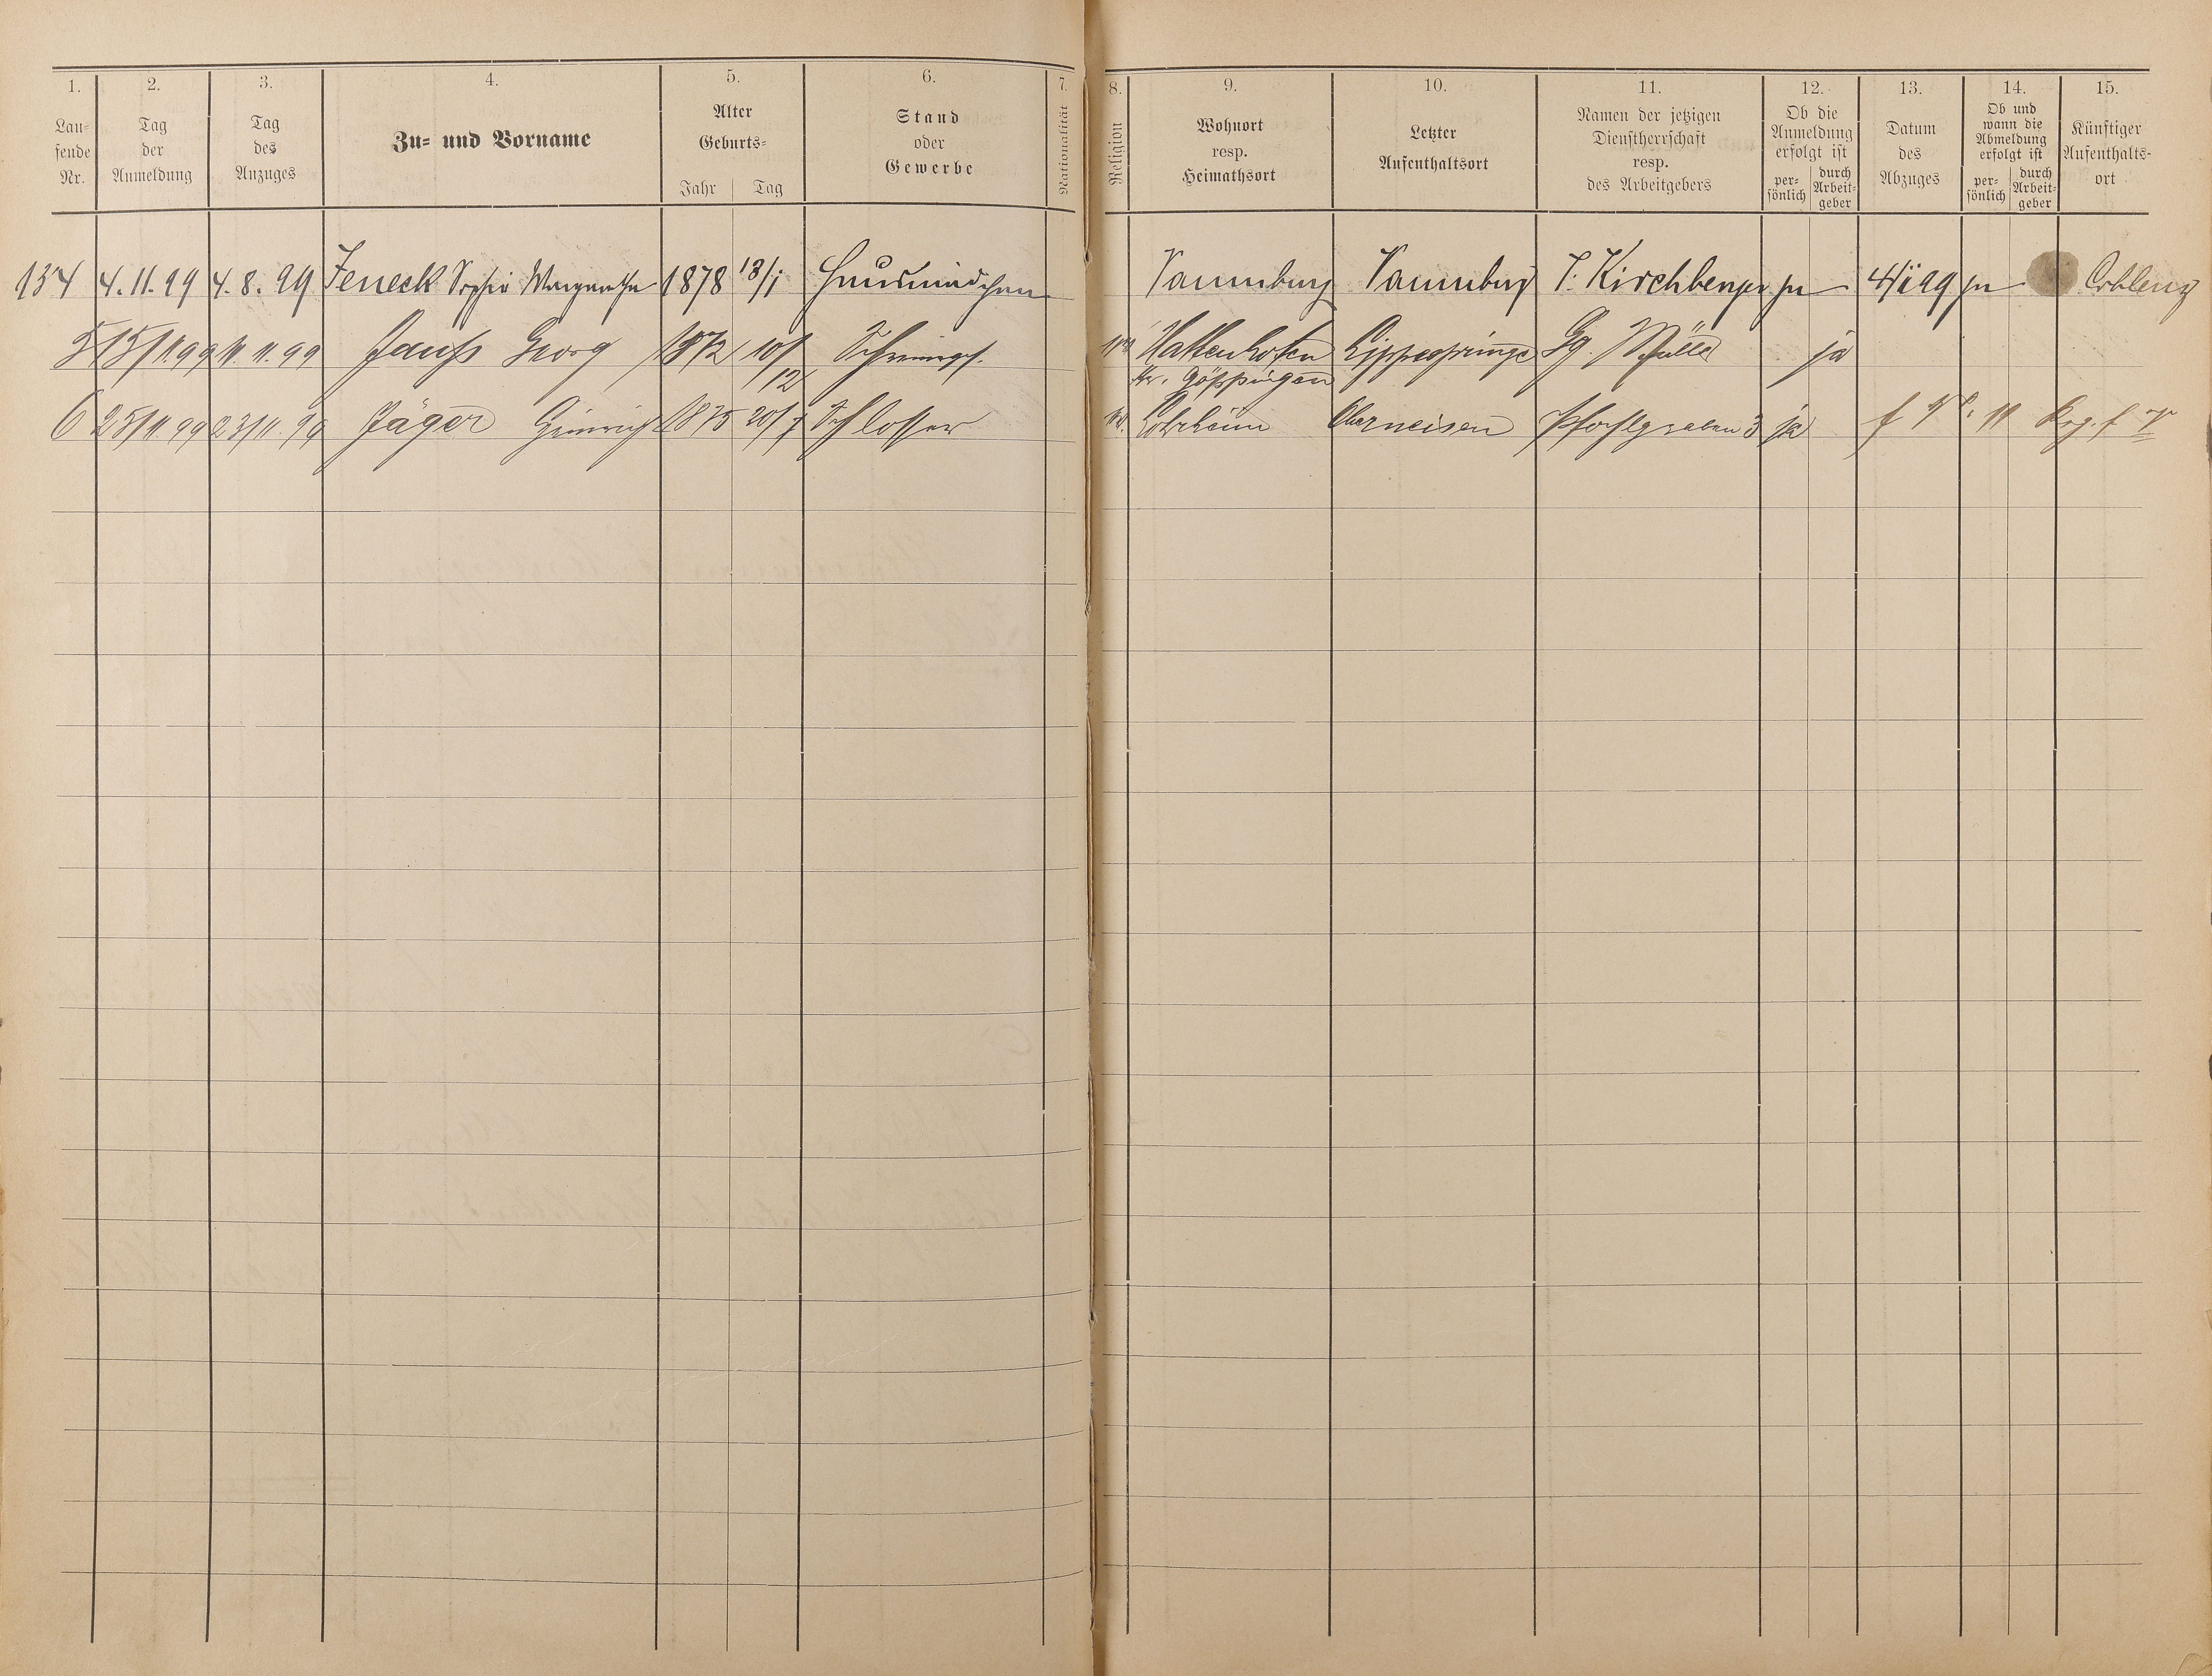 1. 2. 3. 4. 5. 6. 7. 8. 9. 10. 11. 12. 13. 14. 15.
Lau-
fende
Nr.
Tag
der
Anmeldung
Tag
des
Anzuges
Zu- und Vorname
Alter
Geburts-
Jahr Tag
Stand
oder
Gewerbe
Nationalität
Religion
Wohnort
resp.
Heimathsort
Letzter
Aufenthaltsort
Namen der jetzigen
Dienstherrschaft
resp.
des Arbeitgebers
Ob die
Anmeldung
erfolgt ist
per-
sönlich
durch
Arbeit-
geber
Datum
des
Abzuges
Ob und
wann die
Abmeldung
erfolgt ist
per-
sönlich
durch
Arbeit-
geber
Künftiger
Aufenthalts-
ort
134 4.11.99 4.8.99 Jeneck Sophie Margarethe 1878 13/1 Hausmädchen Kirchberger ja ja Coblenz
5 15/11.99 11.99 Georg 1872 10/12 Hattenhofen Lippspringe Gg. Müller ja
Kr. Göppingen
6 25/11.99 23/11.99 Jäger Heinrich 1875 20/7 Schlosser Lohrheim Oberneisen 3 ja